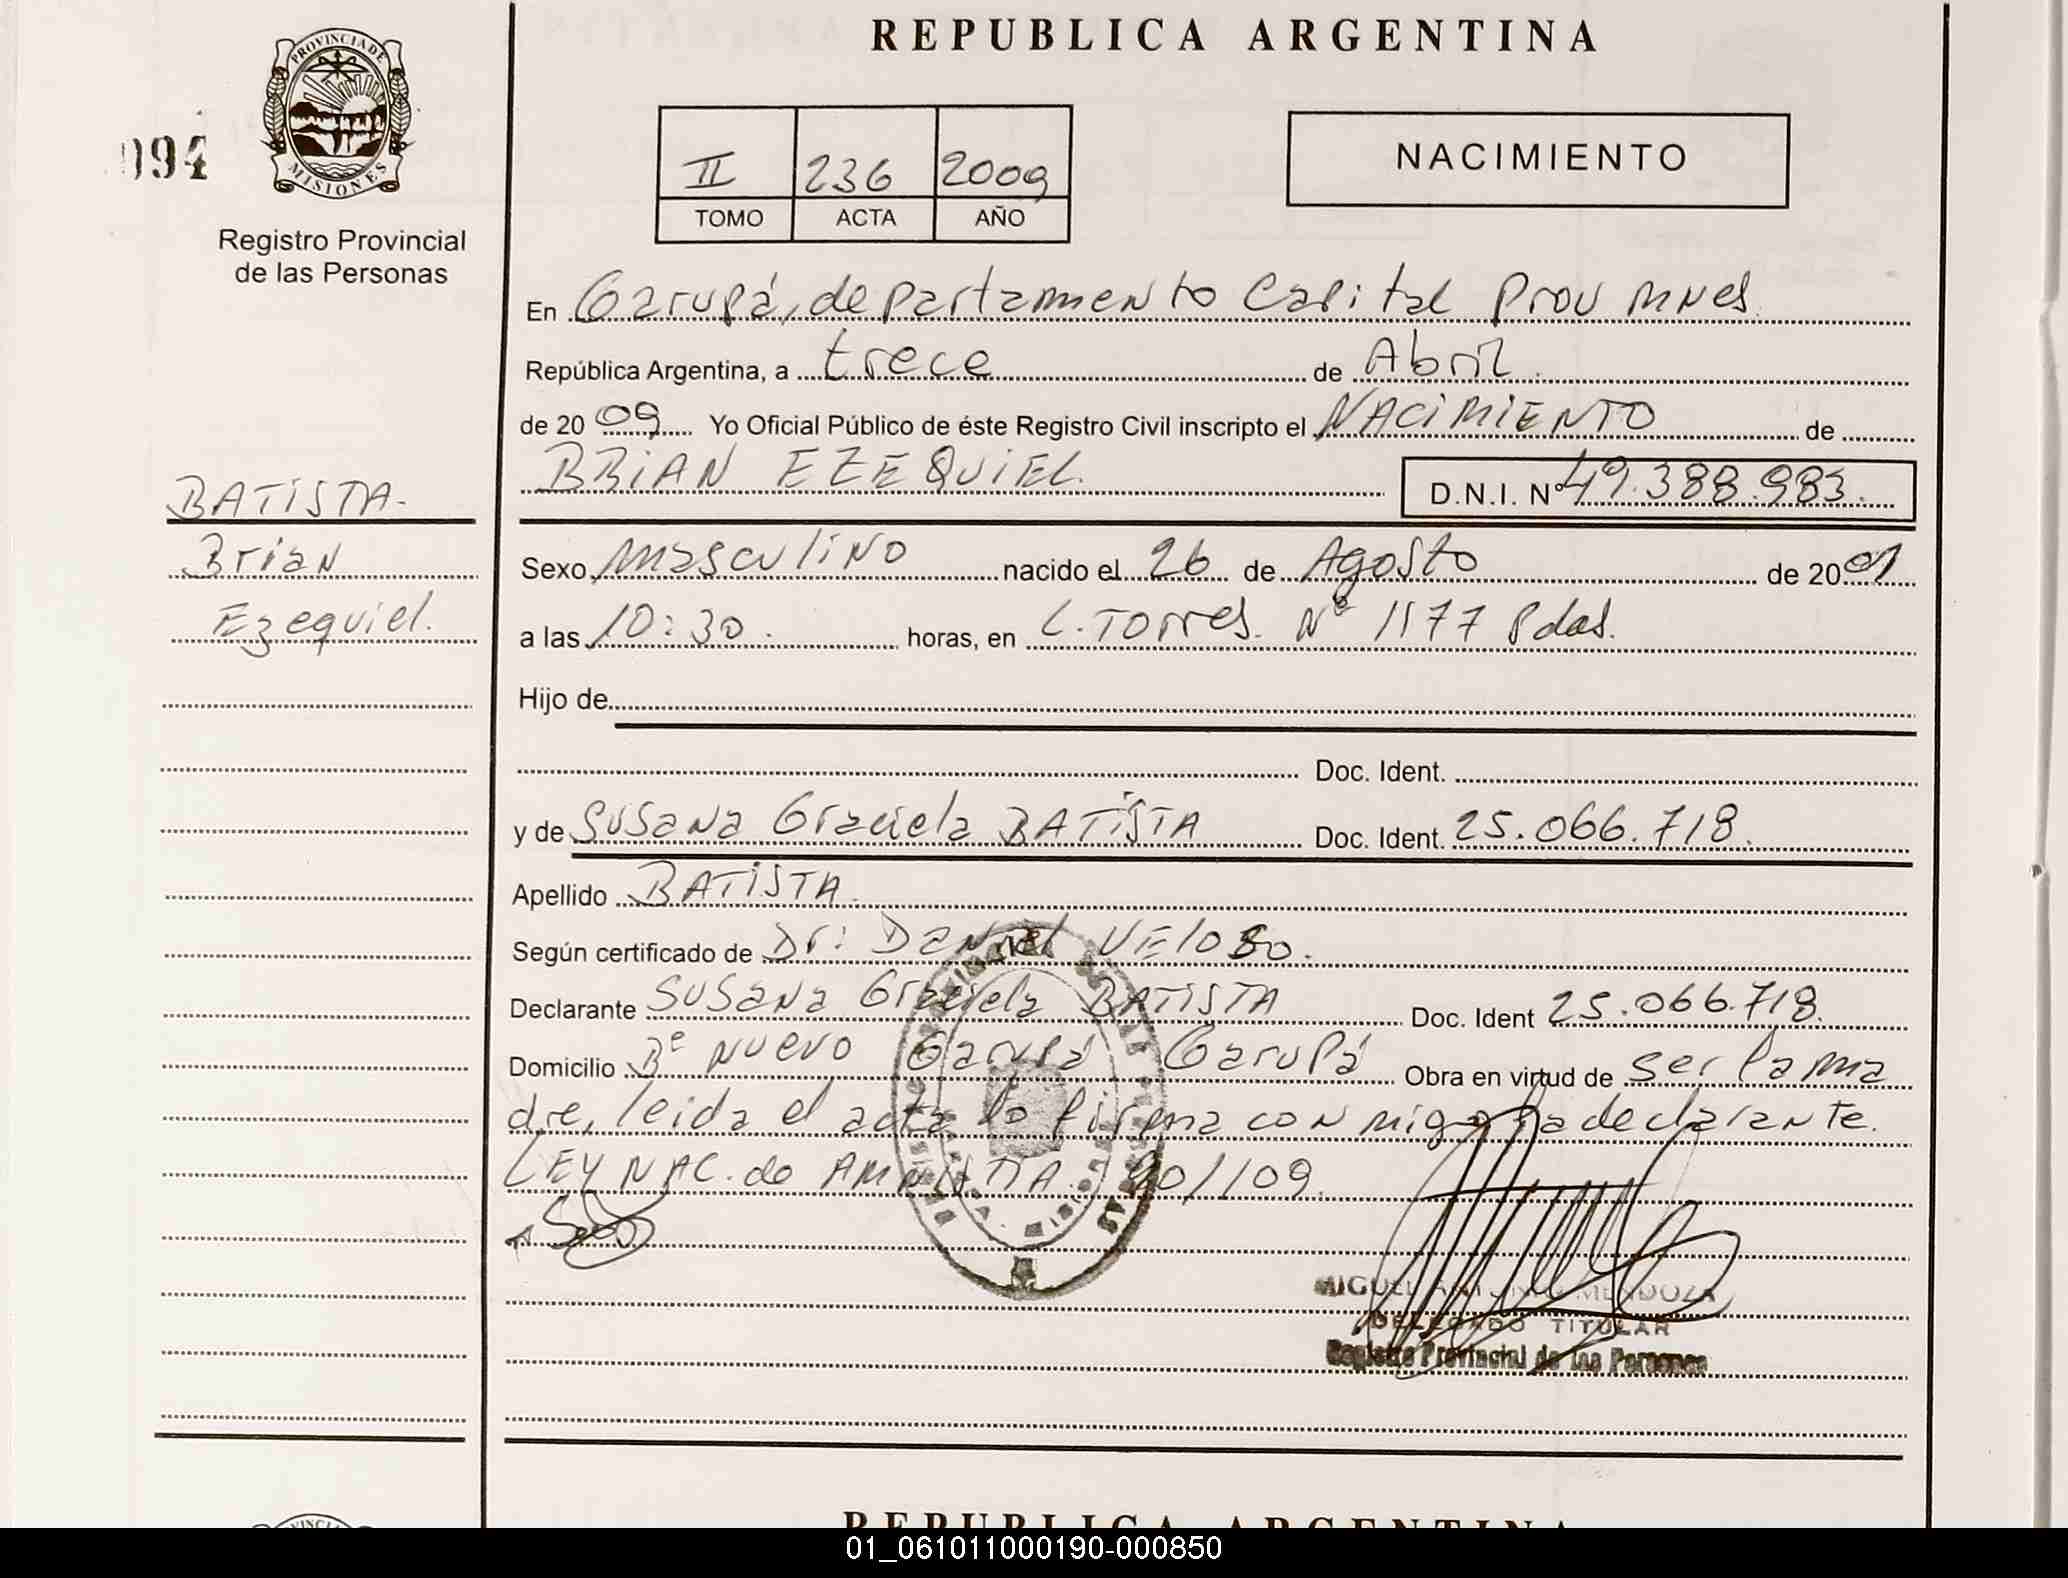 REPUBLICA ARGENTINA
PROVINCIA DE
MISIONES
094
Registro Provincial
de las Personas
II 236 2009
TOMO ACTA AÑO
NACIMIENTO
En Garupá, departamento Capital Prov Mnes
República Argentina, a trece de Abril
de 2009 Yo Oficial Público de éste Registro Civil inscripto el NACIMIENTO de
BRIAN EZEQUIEL D.N.I. Nº 49.388.983.
BATISTA.
Brian
Ezequiel.
Sexo masculino nacido el 26 de Agosto de 2001
a las 10:30. horas, en L. Torres. Nº 1177 Pdas.
Hijo de
Doc. Ident.
y de Susana Graciela BATISTA Doc. Ident. 25.066.718.
Apellido BATISTA.
Según certificado de Dr: Daniel VEloso.
Declarante Susana Graciela BATISTA Doc. Ident 25.066.718.
Domicilio Bº Nuevo Garupá Garupá Obra en virtud de ser la ma
dre, leida el acta la firma conmigo la declarante.
LEY NAC. de AMNISTIA. 90/109.
MIGUEL ANTONIO MENDOZA
DELEGADO TITULAR
Registro Provincial de las Personas
REPUBLICA ARGENTINA
01_061011000190-000850